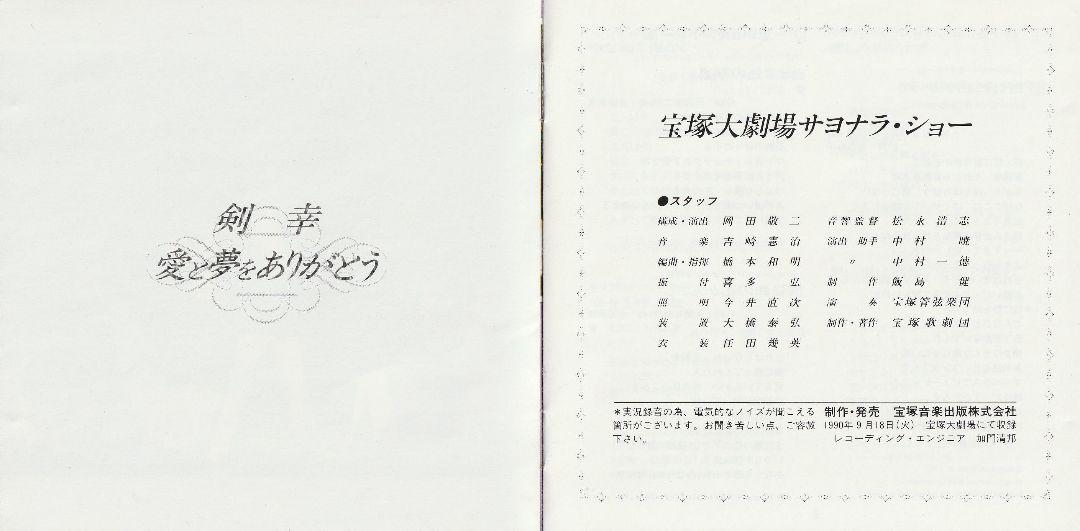 剣 幸
愛と夢をありがとう
宝塚大劇場サヨナラ・ショー
●スタッフ
構成・演出 岡田敬二
音楽 吉崎憲治
編曲・指揮 橋本和明
振付 喜多弘
照明 今井直次
装置 大橋泰弘
衣装 任田幾英
音響監督 松永浩志
演出助手 中村暁
〃 中村一徳
制作 飯島健
演奏 宝塚管弦楽団
制作・著作 宝塚歌劇団
*実況録音の為、電気的なノイズが聞こえる
箇所がございます。お聞き苦しい点、ご容赦
下さい。
制作・発売 宝塚音楽出版株式会社
1990年9月18日(火) 宝塚大劇場にて収録
レコーディング・エンジニア 加門清邦